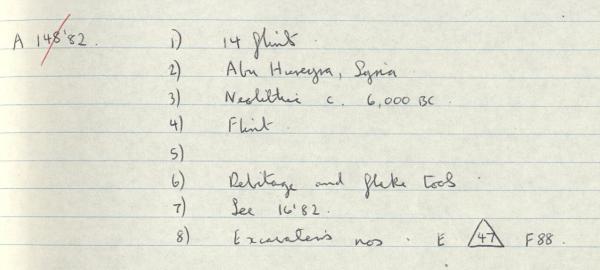 A 148'82. 1) 14 flints.
2) Abu Hureyra, Syria
3) Neolithic c. 6,000 BC.
4) Flint.
5)
6) Debitage and flake tools.
7) See 16'82.
8) Excavator's nos. E 47 F88.